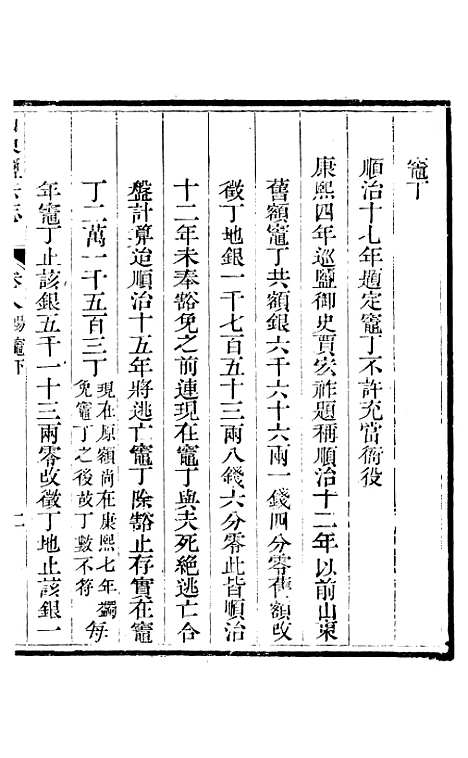 竈丁
順治十七年題定竈丁不許充當衙役
康熙四年巡鹽御史賈宏祚題稱順治十二年以前山東
舊額竈丁共額銀六千六十六兩一錢四分零舊額改
徵丁地銀一千七百五十三兩八錢六分零此皆順治
十二年未奉豁免之前連現在竈丁與夫死絕逃亡合
盤計算迨順治十五年將逃亡竈丁除豁止存實在竈
丁二萬一千五百三丁現在原額尚在康熙七年蠲免竈丁之後故丁數不符每
年竈丁止該銀五千一十三兩零改徵丁地止該銀一
卷八場竈下